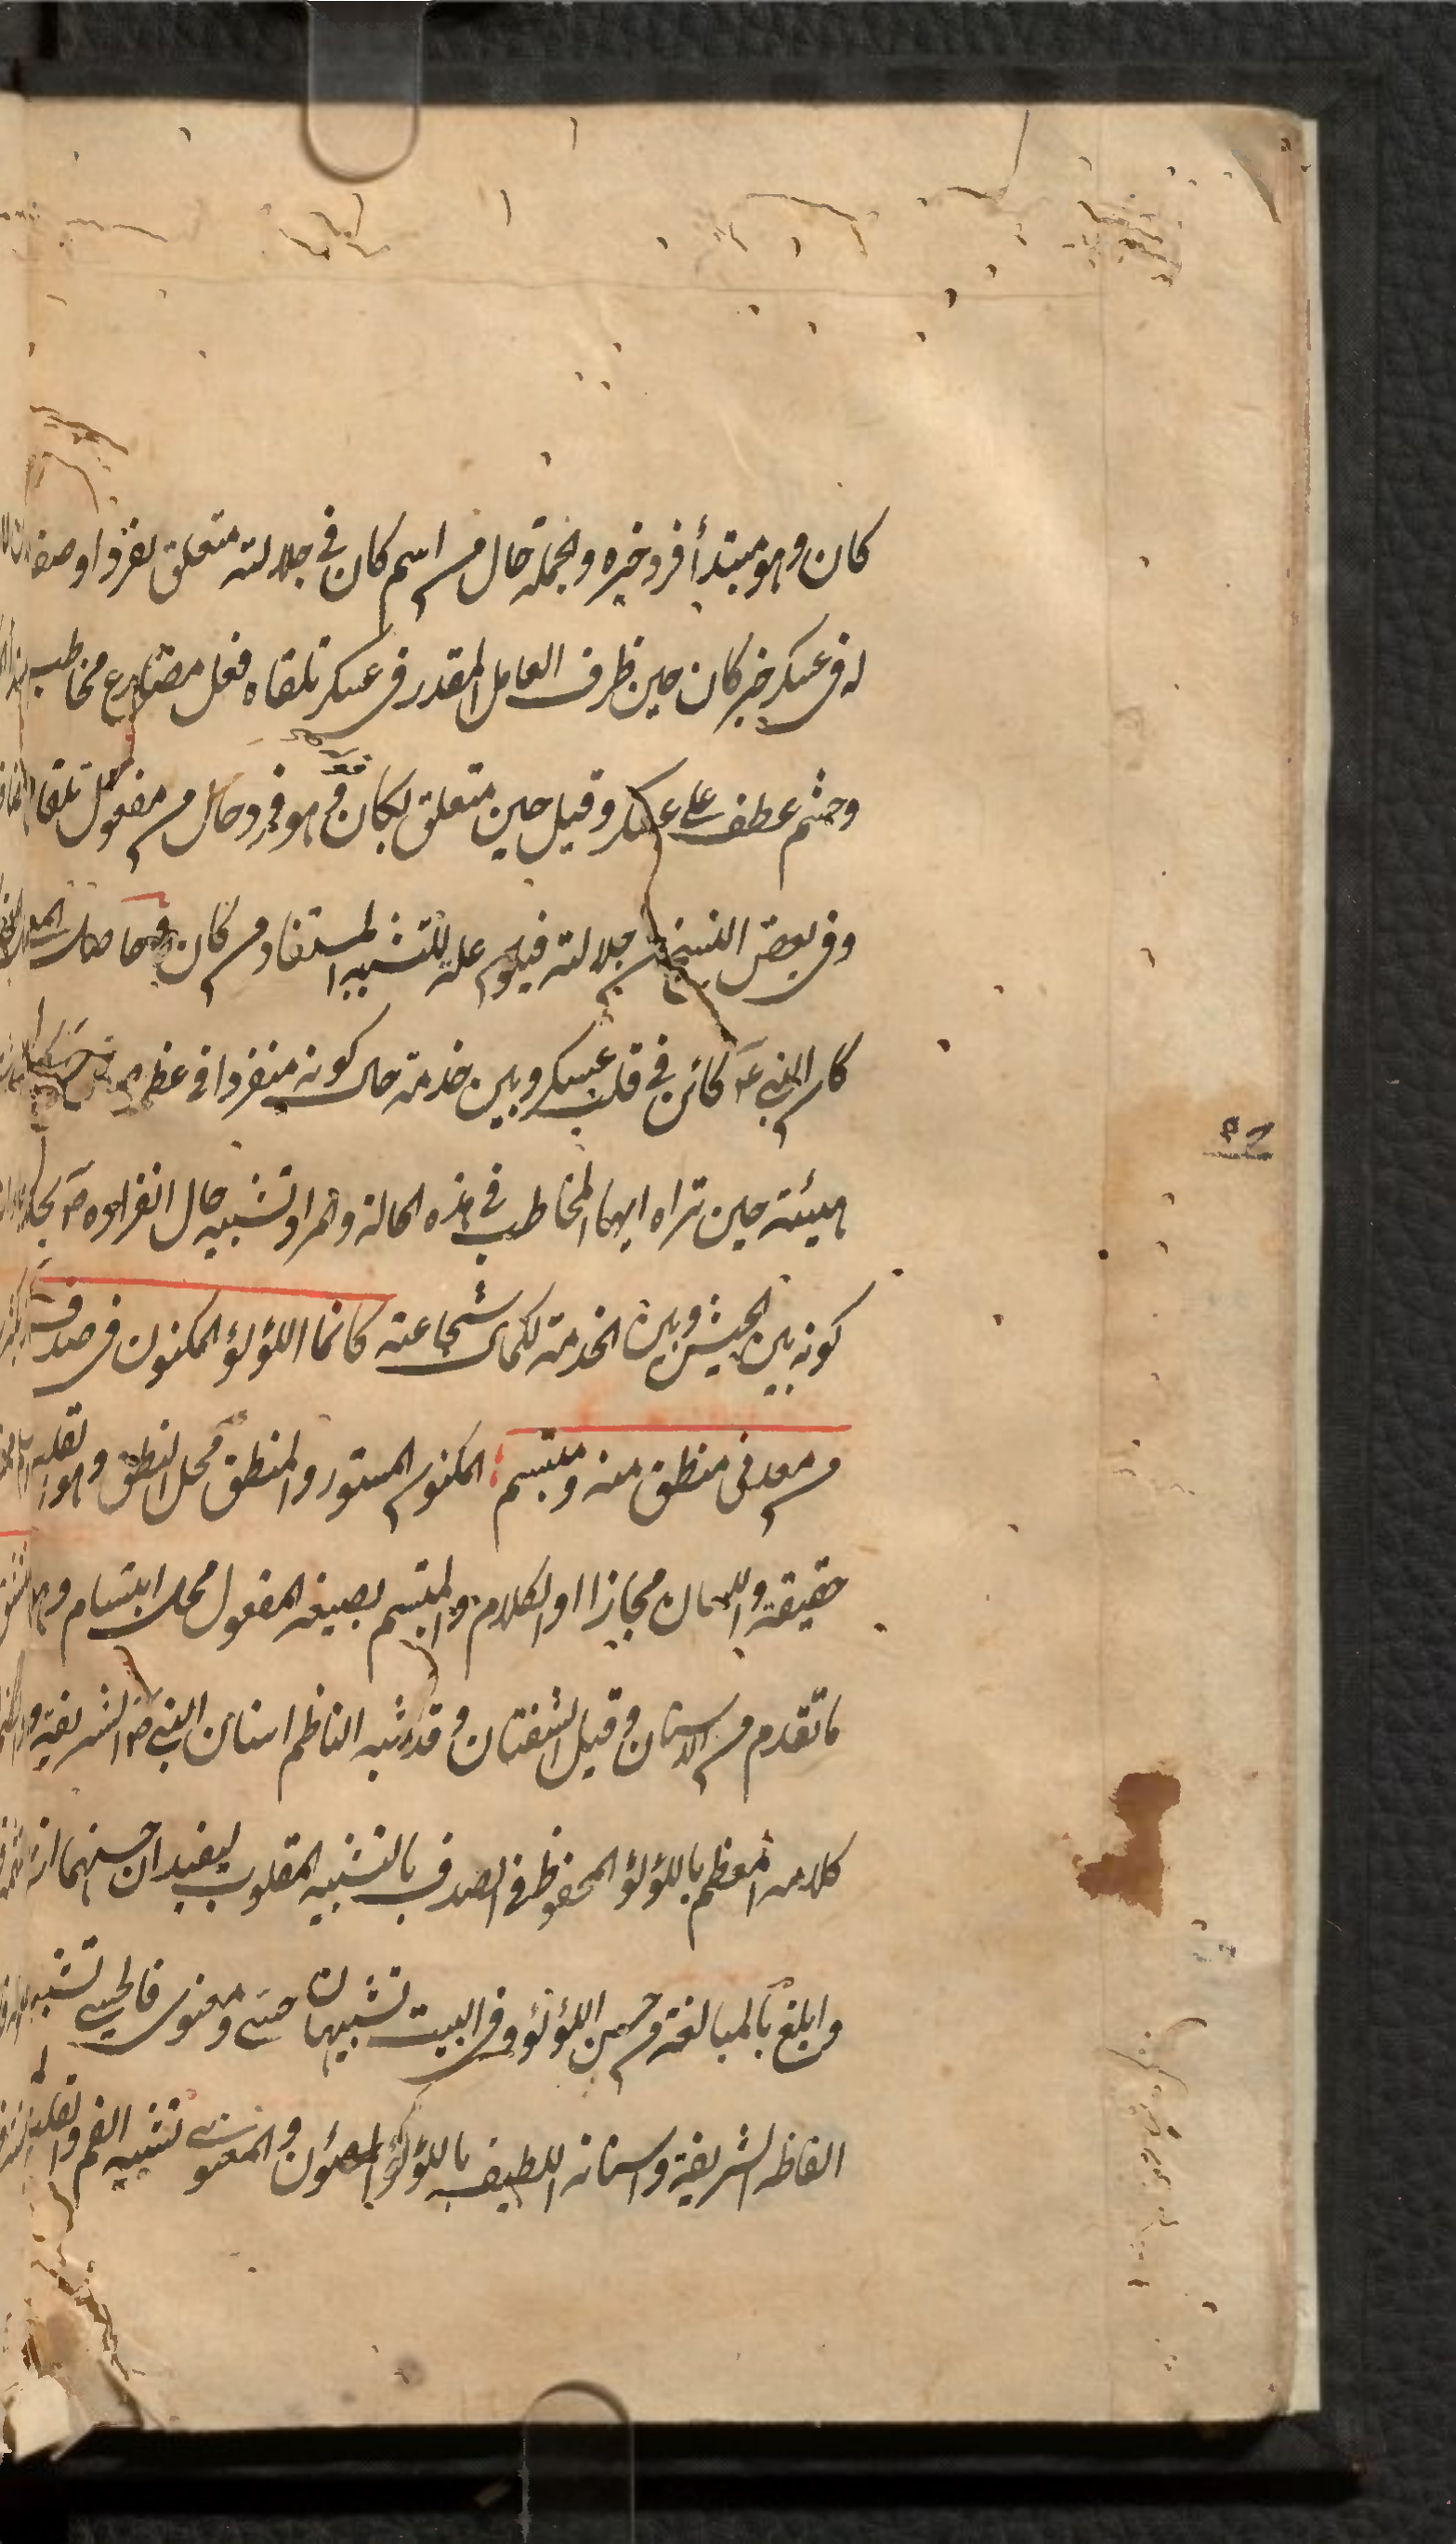 كان وهو مبتدأ فرد خبره والجملة حال من اسم كان في جلالته متعلق بفرد او صفة
له في عسكر خبر كان حين ظرف العامل المقدر في عسكر تلقاه فعل مضارع مخاطب
وحشم عطف على عسكر وقيل حين متعلق بكان وهو فرد حال من مفعول تلقاه
وفي بعض النسخ من جلالته فيكون علة للتشبيه المستفاد من كان وحاصل المعنى
كان النبي عم كائن في قلب عسكر وبين خدمة حال كونه منفردا في عظم
هيئته حين تراه ايها المخاطب في هذه الحالة والمراد تشبيه حال انفراده صم بحال
كونه بين الجيش وبين الخدمة لكمال شجاعته كانما اللؤلؤ المكنون في صدف
من معدني منطق منه ومبتسم المكنون المستور والمنطق محل النطق وهو القلب
حقيقة واللسان مجازا او الكلام والمبتسم بصيغة المفعول محل ابتسام وهو
ما تقدم من الاسنان وقيل الشفتان وقد شبه الناظم اسنان النبي صم الشريفة و
كلامه المعظم باللؤلؤ المحفوظ في الصدف بالتشبيه المقلوب ليفيد ان حسنهما ازيد
وابلغ بالمبالغة من حسن اللؤلؤ وفي البيت تشبيهان حسي ومعنوي فالحسي تشبيه
الفاظه الشريفة واسنانه اللطيف باللؤلؤ المصئون والمعنوي تشبيه الفم والقلب